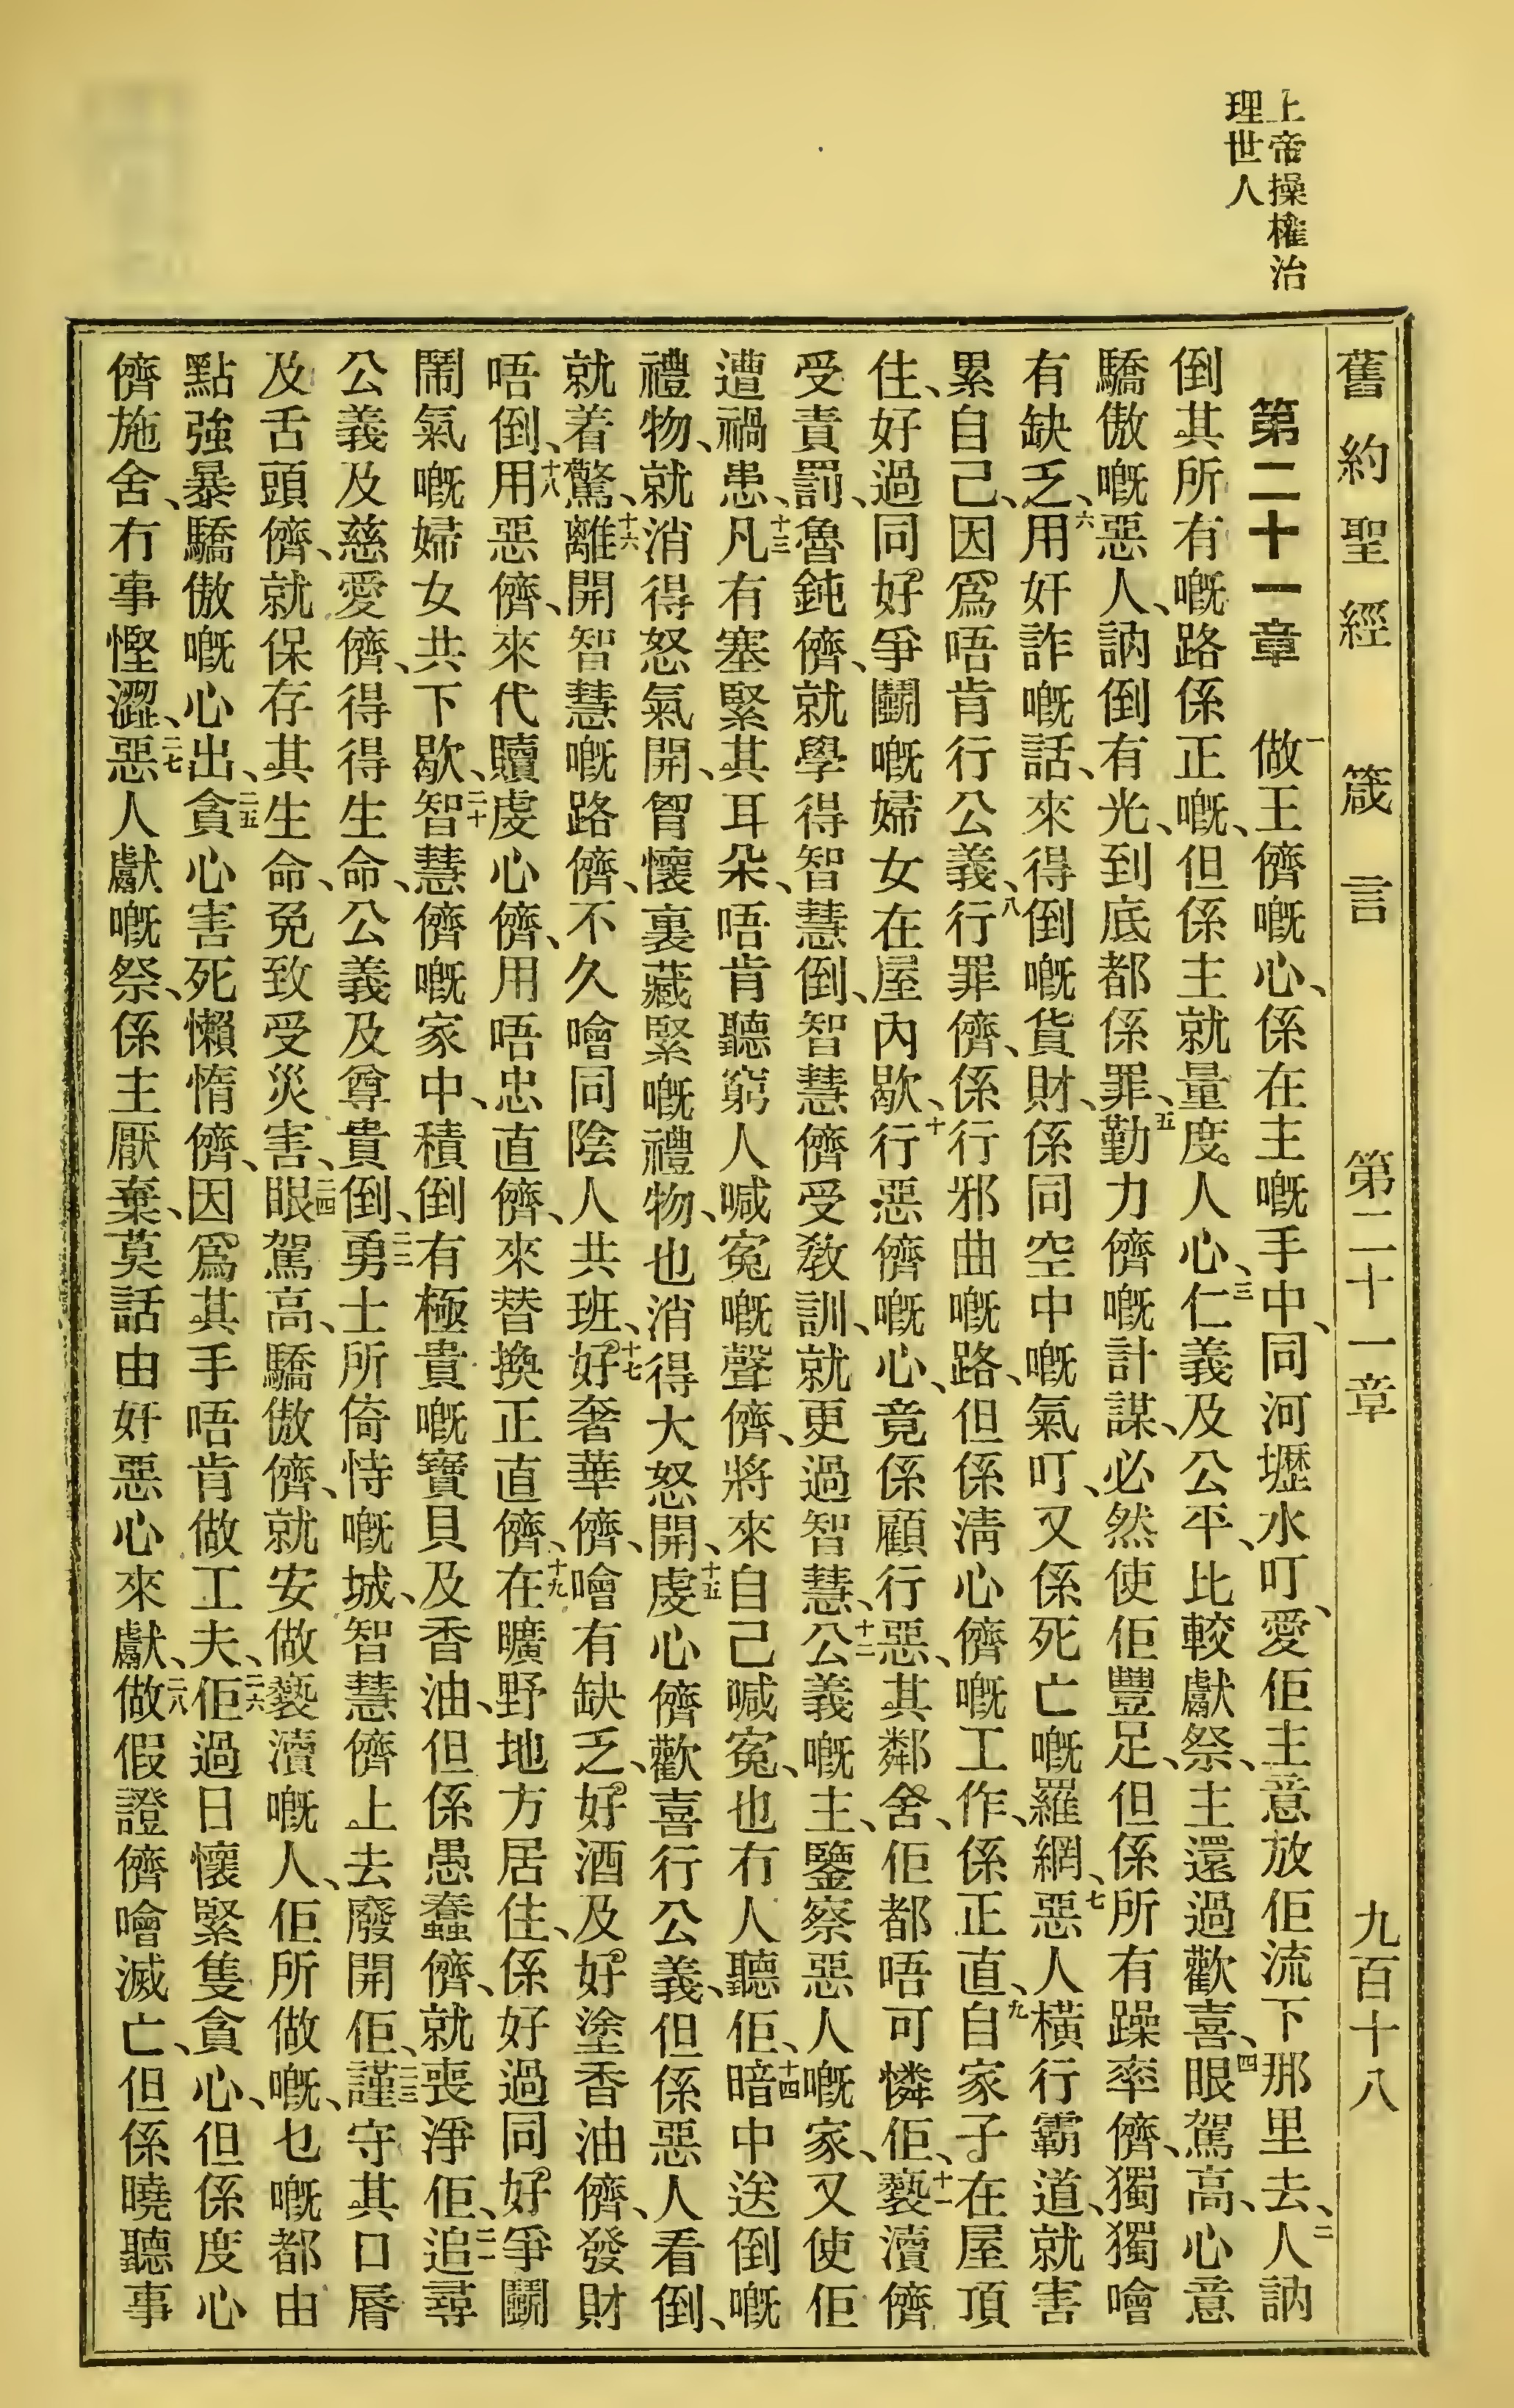 上帝操權治
理世人
舊約聖經 箴言 第二十一章 九百十八
第二十一章 一做王儕嘅心、係在主嘅手中、同河壢水叮、愛佢主意放佢流下那里去、二人訥
倒其所有嘅路係正嘅、但係主就量度人心、三仁義及公平、比較獻祭、主還過歡喜、四眼駕高、心意
驕傲嘅惡人、訥倒有光、到底都係罪、五勤力儕嘅計謀、必然使佢豐足、但係所有躁率儕、獨獨噲
有缺乏、六用奸詐嘅話、來得倒嘅貨財、係同空中嘅氣叮、又係死亡嘅羅網、七惡人橫行霸道、就害
累自己、因爲唔肯行公義、八行罪儕、係行邪曲嘅路、但係淸心儕嘅工作、係正直、九自家子在屋頂
住、好過同好爭鬭嘅婦女在屋內歇、十行惡儕嘅心、竟係顧行惡、其鄰舍、佢都唔可憐佢、十一褻瀆儕
受責罰、魯鈍儕、就學得智慧倒、智慧儕受敎訓、就更過智慧、十二公義嘅主、鑒察惡人嘅家、又使佢
遭禍患、十三凡有塞緊其耳朵、唔肯聽窮人喊寃嘅聲儕、將來自己喊寃、也冇人聽佢、十四暗中送倒嘅
禮物、就消得怒氣開、胷懷裏藏緊嘅禮物、也消得大怒開、十五虔心儕歡喜行公義、但係惡人看倒、
就着驚、十六離開智慧嘅路儕、不久噲同陰人共班、十七好奢華儕、噲有缺乏、好酒及好塗香油儕、發財
唔倒、十八用惡儕、來代贖虔心儕、用唔忠直儕、來替換正直儕、十九在曠野地方居住、係好過同好爭鬭
鬧氣嘅婦女共下歇、二十智慧儕嘅家中、積倒有極貴嘅寶貝及香油、但係愚蠢儕、就喪淨佢、二一追尋
公義及慈愛儕、得得生命、公義及尊貴倒、二二勇士所倚恃嘅城、智慧儕上去廢開佢、二三謹守其口脣
及舌頭儕、就保存其生命、免致受災害、二四眼駕高、驕傲儕、就安做褻瀆嘅人、佢所做嘅、乜嘅都由
點強暴驕傲嘅心出、二五貪心害死懶惰儕、因爲其手唔肯做工夫、二六佢過日懷緊隻貪心、但係度心
儕施舍、冇事慳澀、二七惡人獻嘅祭、係主厭棄、莫話由奸惡心來獻、二八做假證儕噲滅亡、但係曉聽事